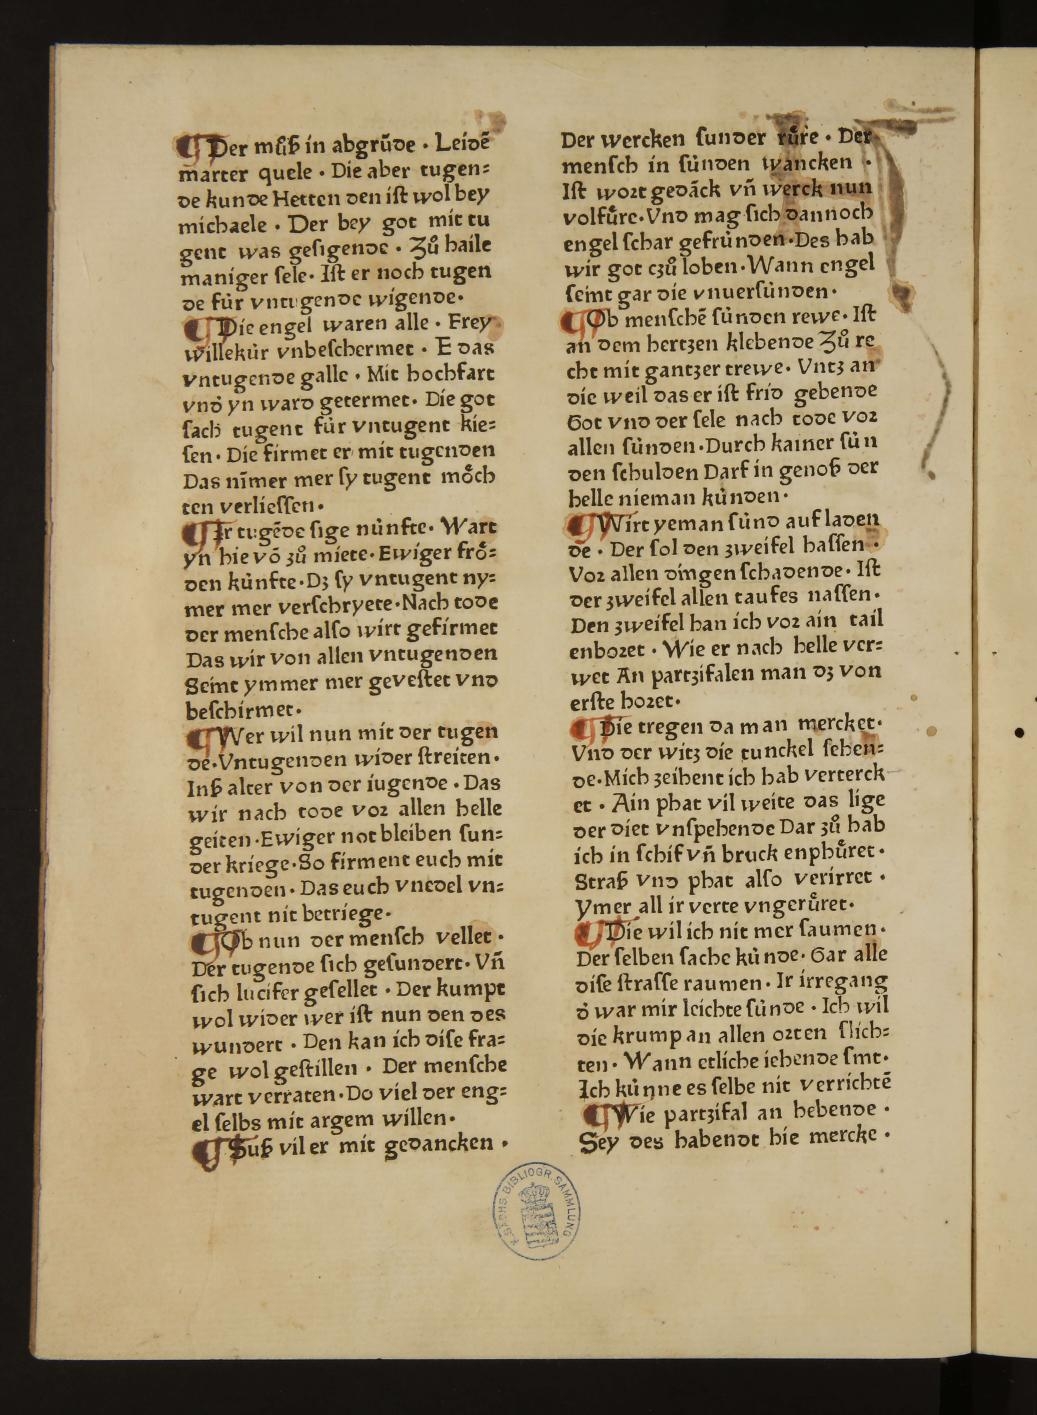 ¶ Der můß in abgrūde · Leidē
marter quele · Die aber tugen⸗
de kunde Hetten den iſt wol bey
michaele · Der bey got mit tu
gent was geſigende · Zů haile
maniger ſele · Iſt er noch tugen
de für vntugende wigende ·
¶ Die engel waren alle · Frey
willekür vnbeſchermet · E das
vntugende galle · Mit hochfart
vnd yn ward getermet · Die got
ſach tugent für vntugent kie⸗
ſen · Die firmet er mit tugenden
Das nīmer mer ſy tugent möch
ten verlieſſen ·
¶ Ir tugēde ſige nünfte · Wart
yn hie vō zů miete · Ewiger frö⸗
den künfte · Dz ſy vntugent ny⸗
mer mer verſchryete · Nach tode
der menſche alſo wirt gefirmet
Das wir von allen vntugenden
Seint ymmer mer geveſtet vnd
beſchirmet ·
¶ Wer wil nun mit der tugen
de · Vntugenden wider ſtreiten ·
Inß alter von der iugende · Das
wir nach tode vor allen helle
geiten · Ewiger not bleiben ſun⸗
der kriege · So firment euch mit
tugenden · Das euch vnedel vn⸗
tugent nit betriege ·
¶ Ob nun der menſch vellet ·
Der tugende ſich geſundert · Vñ
ſich lucifer geſellet · Der kumpt
wol wider wer iſt nun den des
wundert · Den kan ich diſe fra⸗
ge wol geſtillen · Der menſche
wart verraten · Do viel der eng⸗
el ſelbs mit argem willen ·
¶ Suß vil er mit gedancken ·
Der wercken ſunder růre · Der
menſch in ſünden wancken ·
Iſt wort gedāck vñ werck nun
volfůre · Vnd mag ſich dannoch
engel ſchar gefründen · Des hab
wir got czů loben · Wann engel
ſeint gar die vnuerſünden ·
¶ Ob menſchē ſünden rewe · Iſt
an dem hertzen klebende Zů re
cht mit gantzer trewe · Vntz an
die weil das er iſt frid gebende
Got vnd der ſele nach tode vor
allen ſünden · Durch kainer ſün
den ſchulden Darf in genoß der
helle nieman künden ·
¶ Wirt yeman ſünd auf laden
de · Der ſol den zweifel haſſen ·
Vor allen dingen ſchadende · Iſt
der zweifel allen taufes naſſen ·
Den zweifel han ich vor ain tail
enboret · Wie er nach helle ver⸗
wet An partzifalen man dz von
erſte horet ·
¶ Die tregen da man mercket ·
Vnd der witz die tunckel ſehen⸗
de · Mich zeihent ich hab verterck
et · Ain phat vil weite das lige
der diet vnſpehende Dar zů hab
ich in ſchif vñ bruck enphůret ·
Straß vnd phat alſo verirret ·
Ymer all ir verte vngerůret ·
¶ Die wil ich nit mer ſaumen ·
Der ſelben ſache künde · Gar alle
diſe ſtraſſe raumen · Ir irregang
d̕ war mir leichte ſünde · Ich wil
die krump an allen orten ſlich⸗
ten · Wann etliche iehende ſint ·
Ich künne es ſelbe nit verrichtē
¶ Wie partzifal an hebende ·
Sey des habendt hie mercke ·
K. SÆCHS. BIBLIOGR. SAMMLUNG